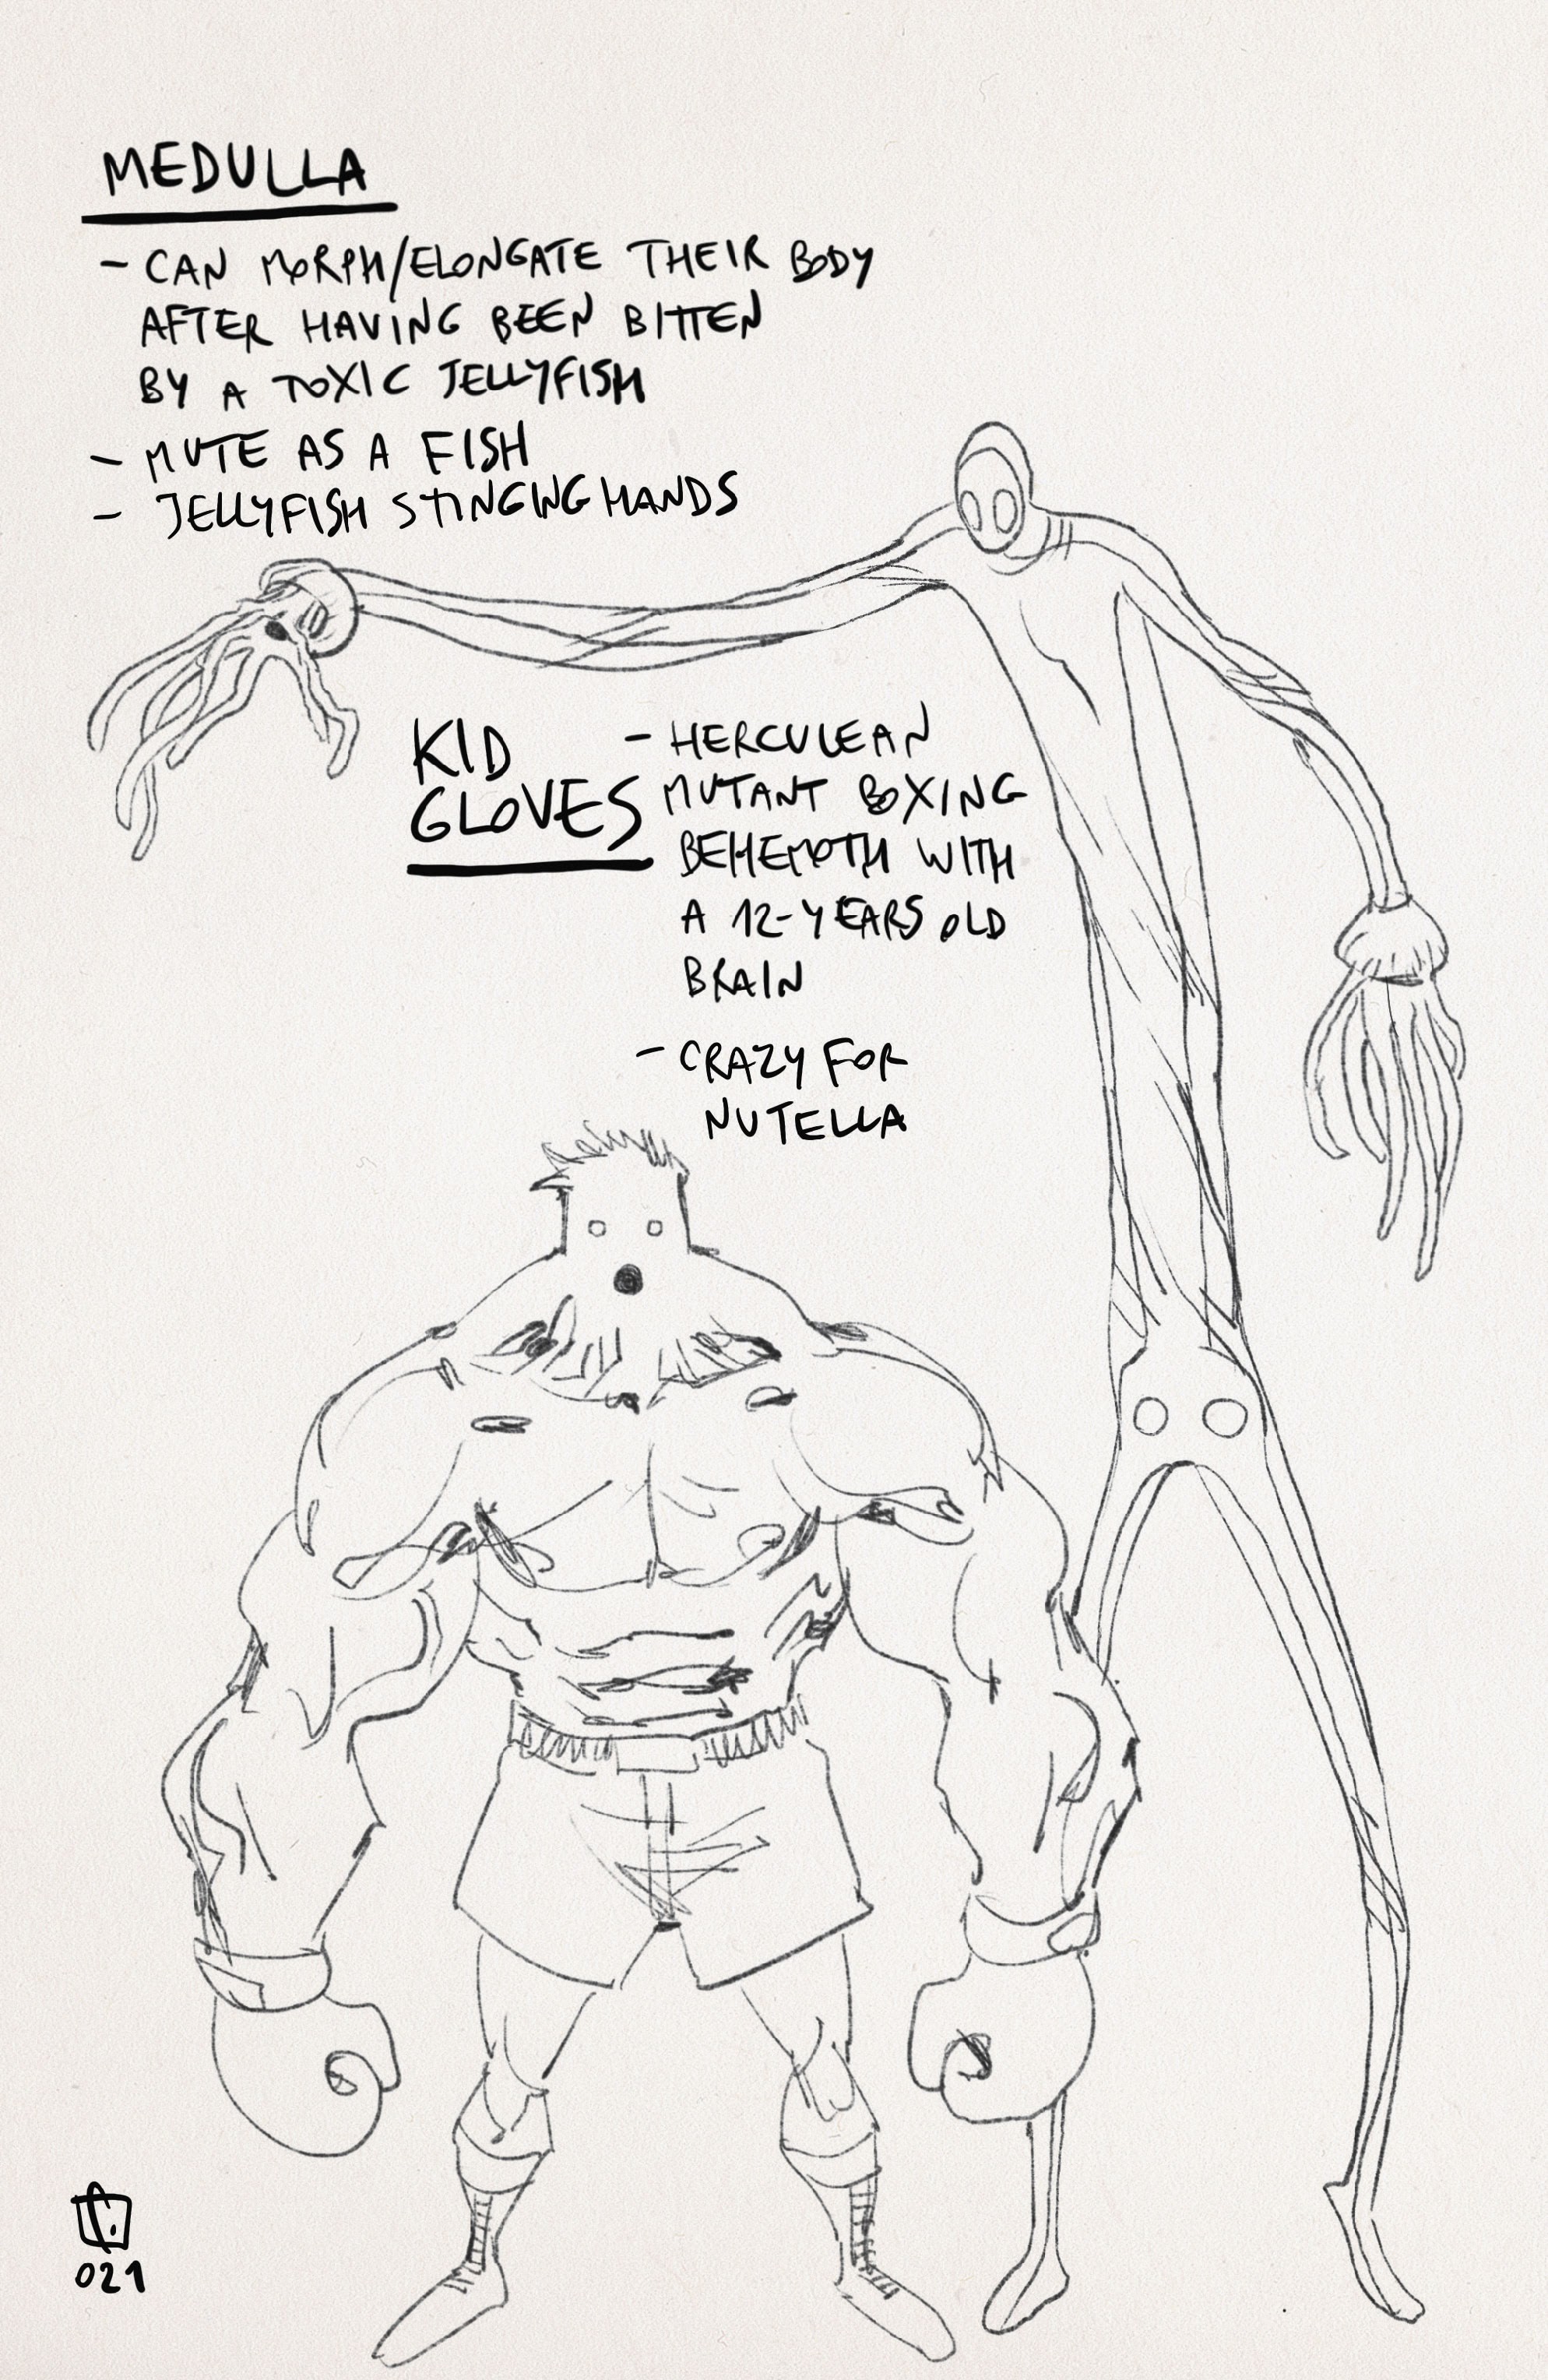 MEDULLA
- CAN MORPH/ELONGATE THEIR BODY
AFTER HAVING BEEN BITTEN
BY A TOXIC JELLYFISH
- MUTE AS A FISH
- JELLYFISH STINGING HANDS
KID
GLOVES
- HERCULEAN
MUTANT BOXING
BEHEMOTH WITH
A 12-YEARS OLD
BRAIN
- CRAZY FOR
NUTELLA
021